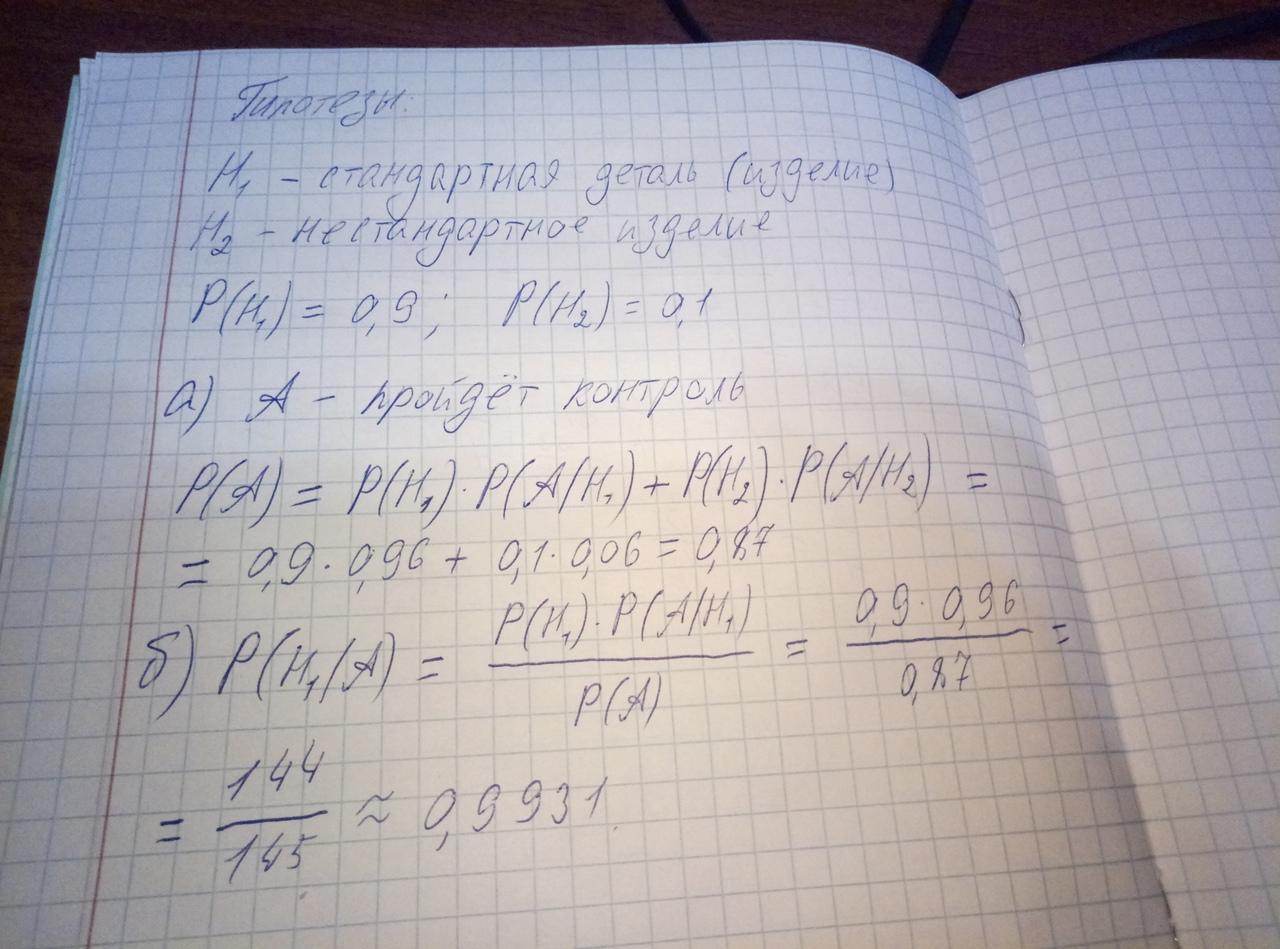 Гипотезы:
H₁ – стандартная деталь (изделие)
H₂ – нестандартное изделие
P(H₁) = 0,9; P(H₂) = 0,1
а) A – пройдёт контроль
P(A) = P(H₁)·P(A/H₁) + P(H₂)·P(A/H₂) =
= 0,9·0,96 + 0,1·0,06 = 0,87
б) P(H₁/A) = P(H₁)·P(A/H₁) / P(A) = 0,9·0,96 / 0,87 =
= 144 / 145 ≈ 0,9931.